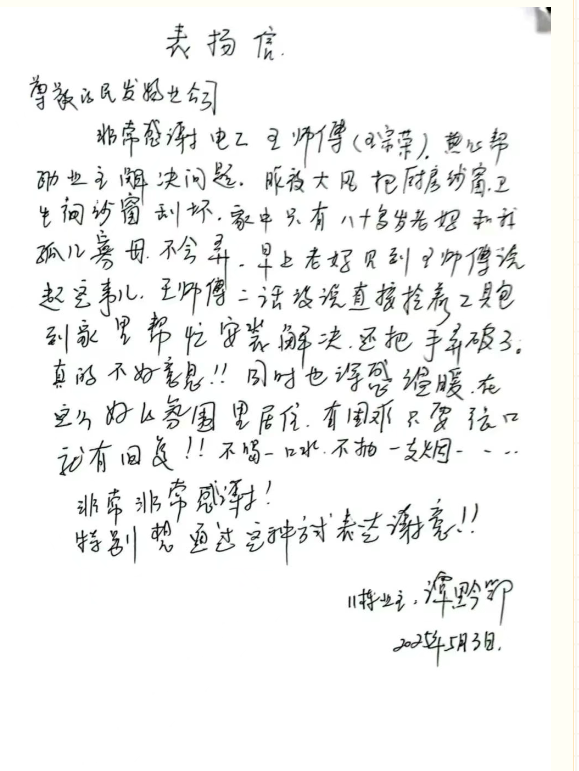 表扬信.
尊敬的民发物业公司
非常感谢电工王师傅(王宗荣),热心帮
助业主解决问题。昨夜大风把厨房纱窗,卫
生间纱窗刮坏.家中只有八十多岁老妈和我
孤儿寡母.不会弄.早上老妈见到王师傅说
起这事儿.王师傅二话没说直接拎着工具包
到家里帮忙安装解决.还把手弄破了。
真的不好意思!!同时也深感温暖.在
这个好的氛围里居住.有困难只要张口
就有回复!!不喝一口水.不抽一支烟....
非常非常感谢!
特别想通过这种方式表达谢意!!
11栋业主:谭黔
2025年5月3日.